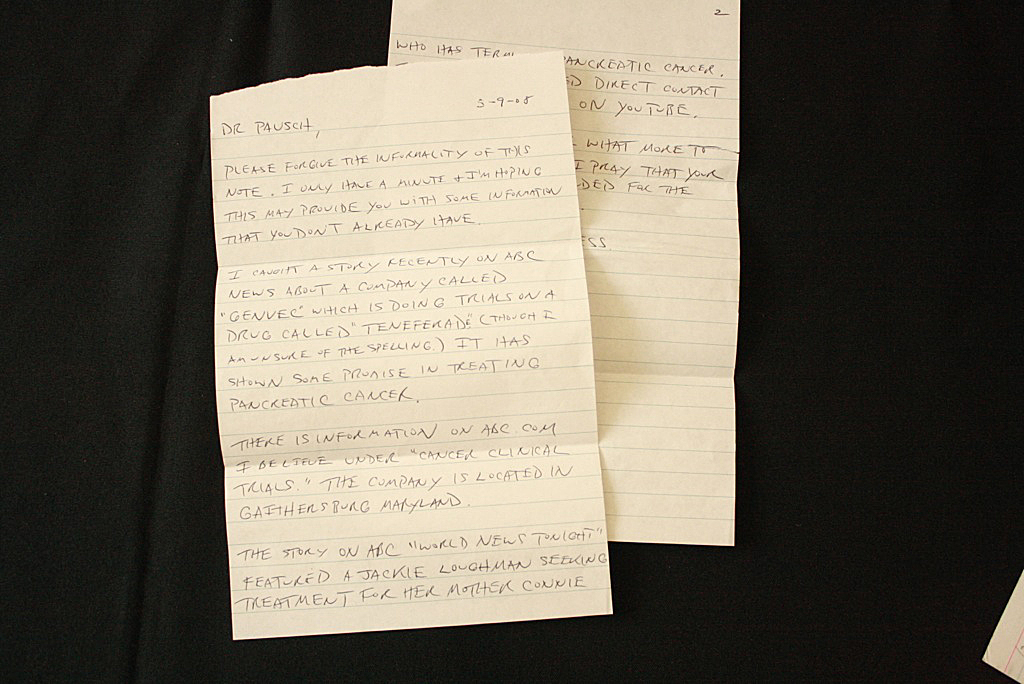 3-9-08
DR PAUSCH,
PLEASE FORGIVE THE INFORMALITY OF THIS
NOTE. I ONLY HAVE A MINUTE & I'M HOPING
THIS MAY PROVIDE YOU WITH SOME INFORMATION
THAT YOU DON'T ALREADY HAVE.
I CAUGHT A STORY RECENTLY ON ABC
NEWS ABOUT A COMPANY CALLED
"GENVEC" WHICH IS DOING TRIALS ON A
DRUG CALLED "TENEFERADE" (THOUGH I
AM UNSURE OF THE SPELLING.) IT HAS
SHOWN SOME PROMISE IN TREATING
PANCREATIC CANCER.
THERE IS INFORMATION ON ABC.COM
I BELIEVE UNDER "CANCER CLINICAL
TRIALS." THE COMPANY IS LOCATED IN
GAITHERSBURG MARYLAND.
THE STORY ON ABC "WORLD NEWS TONIGHT"
FEATURED A JACKIE LOUGHMAN SEEKING
TREATMENT FOR HER MOTHER CONNIE
2
WHO HAS PANCREATIC CANCER.
DIRECT CONTACT
ON YOUTUBE.
WHAT MORE TO
I PRAY THAT YOUR
FOR THE